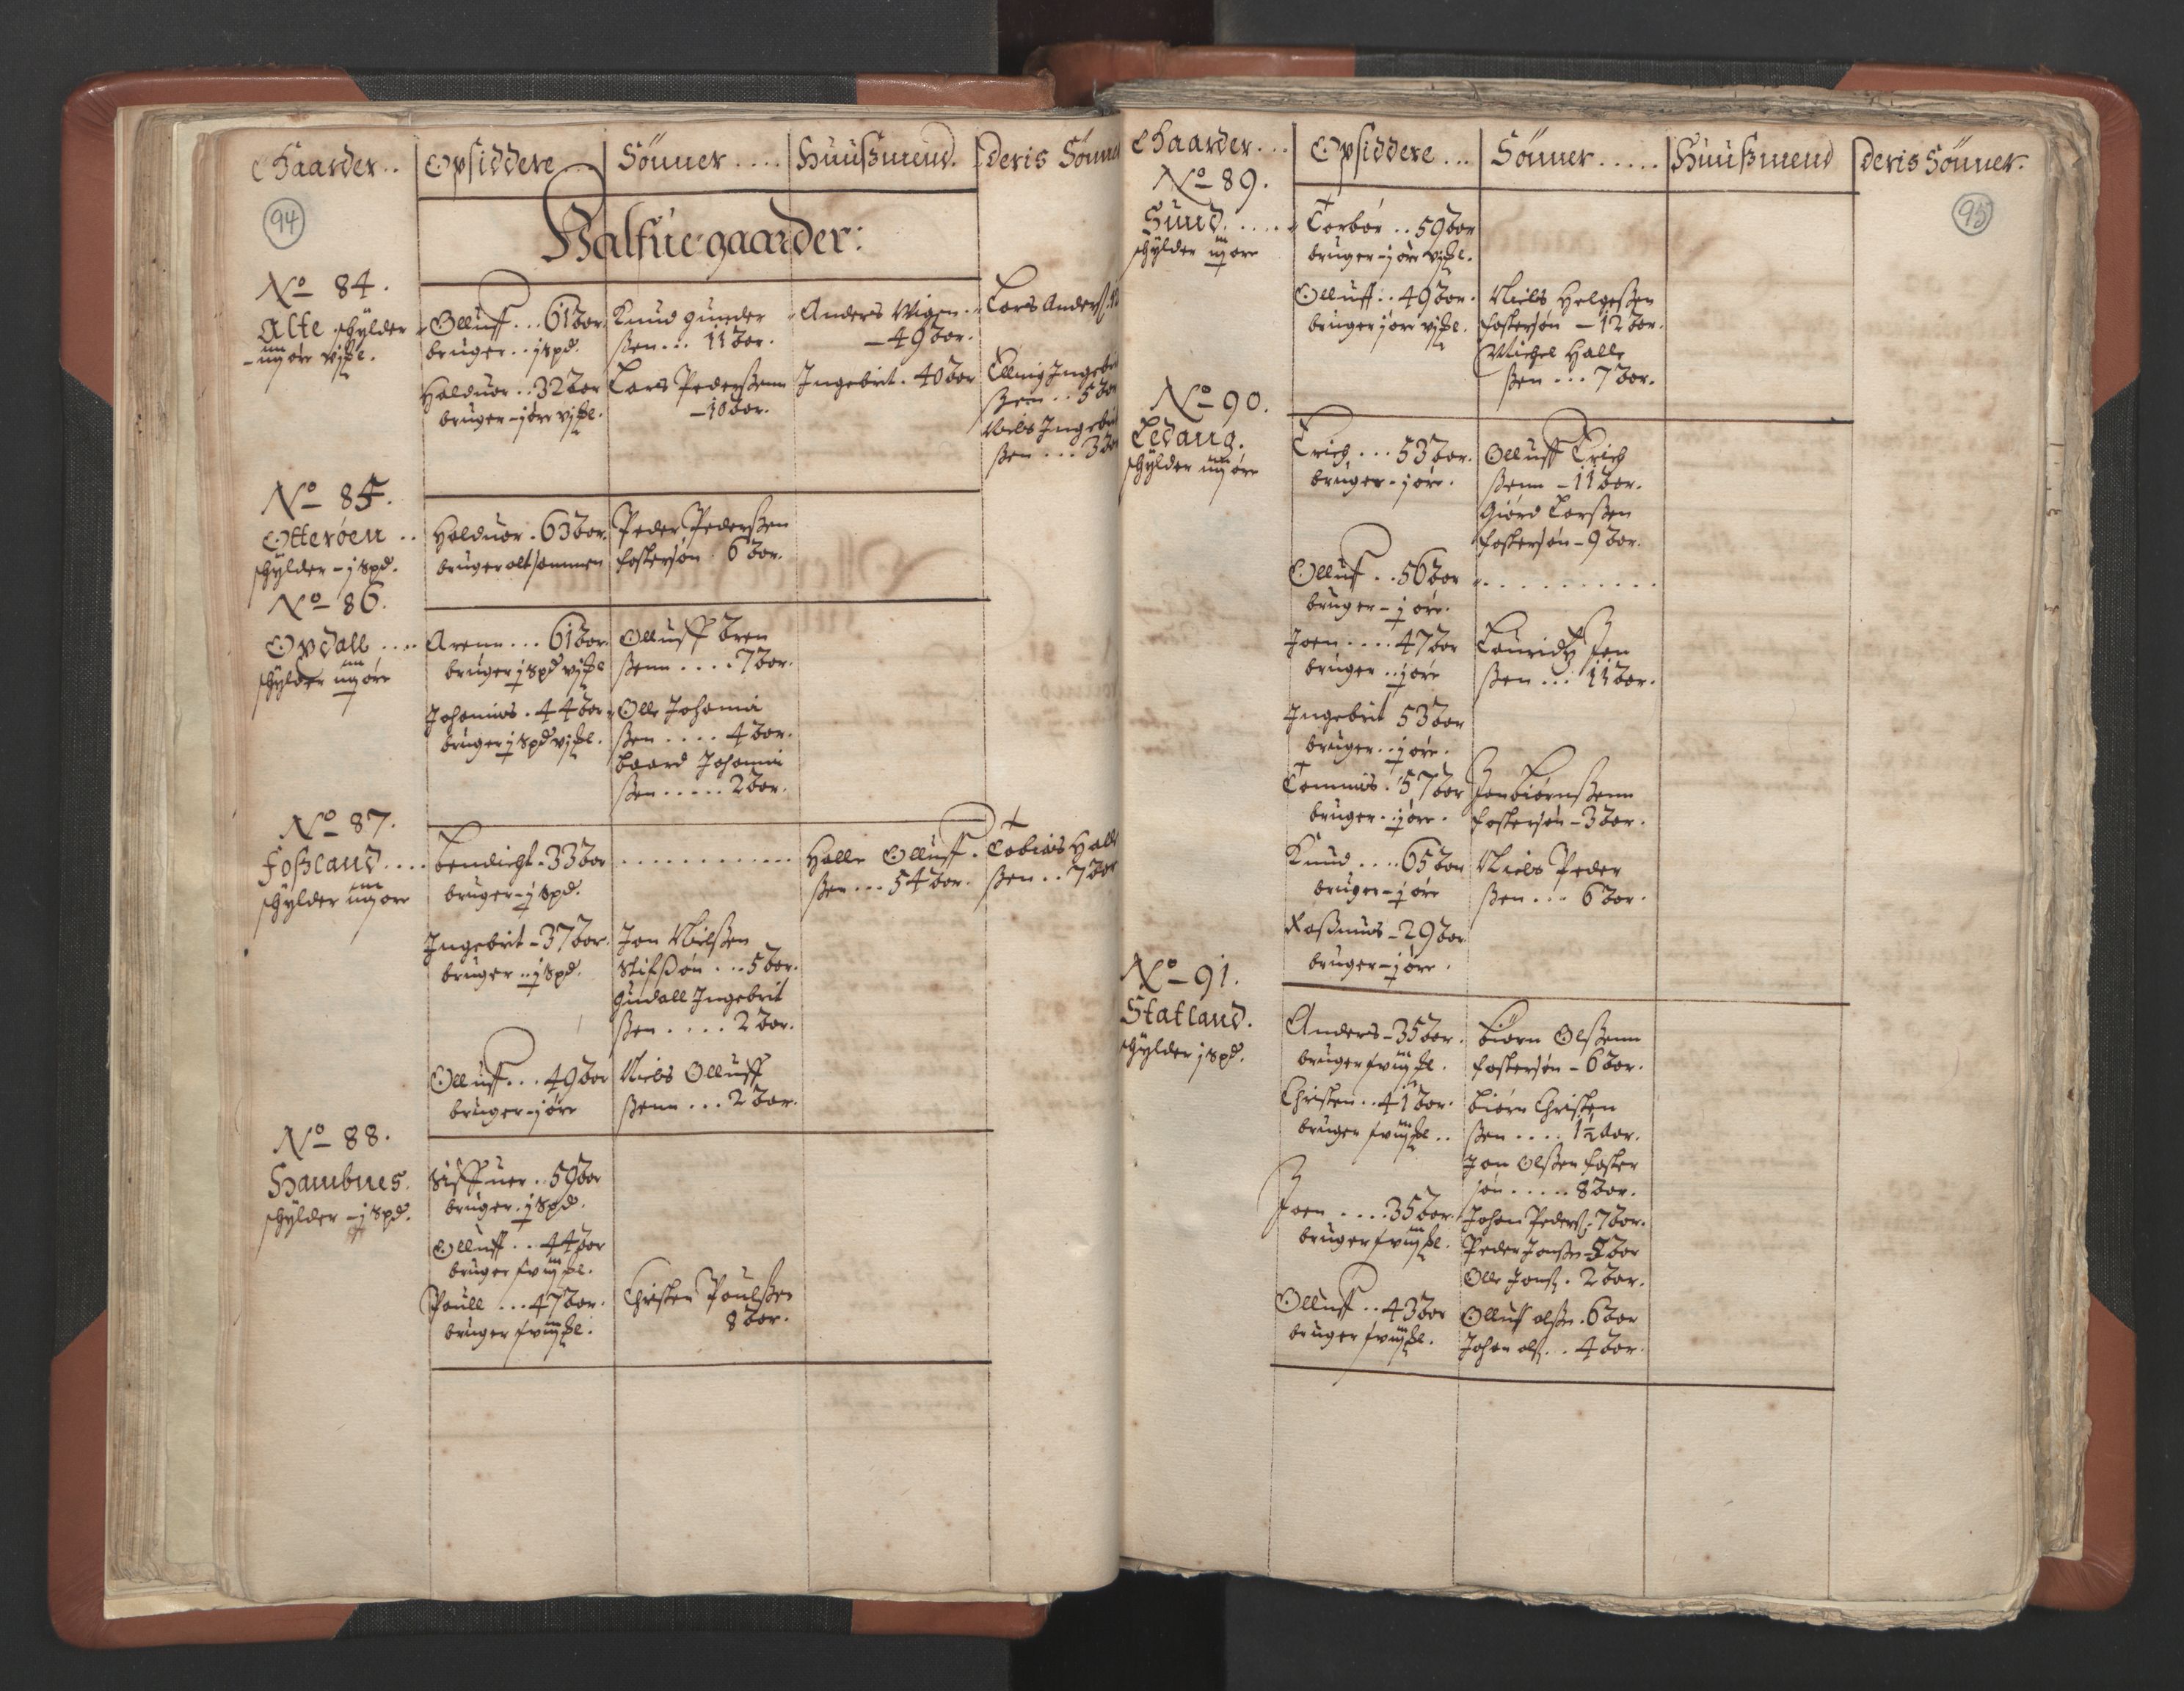 Gaarder.. Opsiddere... Sønner.... Huusmend. Deris Sønner
94
Halfue gaarder:
No 84.
Alte schylder
iiij øre vj
Olluff... 61 aar.
bruger.. j spd.
Halduor.. 32 aar
bruger - j øre vj
Knud gunder
ßen... 11 aar.
Lars Pederßenn
- 10 aar.
Anders Wigen..
- 49 aar.
Ingebrit. 40 aar
Lars Anderß.
Elling Ingebri
ßen.. 5 aar
Niels Ingebri
ßen... 3 aar
No 85.
Otterøen..
schylder - j spd.
Halduor. 63 aar.
bruger alt sammen
Peder Pederßen
fostersøn. 6 aar.
No 86.
Opdall....
schylder iiij øre
Arenn... 61 aar.
bruger j spd vj
Johannis. 44 aar
bruger j spd vj
Olluff Aren
ßenn.... 7 aar.
Olle Johanni
ßen.... 4 aar.
baard Johanni
ßen..... 2 aar.
No 87.
Foßland....
schylder iiij øre
bendicht - 33 aar
bruger - j spd.
Ingebrit - 37 aar.
bruger.. j spd.
Olluff... 49 aar
bruger - j øre
Jon Nielßen
Stifsøn... 5 aar.
gudall Ingebrit
ßen.... 2 aar.
Niels Olluff
ßenn... 2 aar.
Halle Olluff.
ßen... 54 aar.
Tobias Hall
ßen.. 7 aar
No 88.
Hambnes.
schylder - j spd.
Siffuer.. 50 aar
bruger. j spd.
Olluff.. 44 aar
bruger
Paull... 47 aar.
bruger
Christen Paulßen
8 aar.
Gaarder... Opsiddere... Sønner..... Huusmend Deris Sønner.
95
No 89.
Sund.....
schylder iij øre
Torbør.. 59 aar
bruger - j øre vj
Olluff.. 49 aar.
bruger j øre vj
Niels Helgeßen
fostersøn - 12 aar.
Michel Halle
ßen... 7 aar.
No 90.
Ledang.
schylder iiij øre
Erich... 53 aar.
bruger - j øre.
Olluf.. 56 aar
bruger - j øre.
Joen.... 47 aar
bruger.. j øre
Ingebrit 53 aar
bruger.. j øre.
Tommis. 57 aar
bruger.. j øre.
Knud.... 65 aar
bruger - j øre
Raßmus - 29 aar
bruger - j øre.
Olluff Erich
ßenn - 11 aar.
Giord Larßen
fostersøn - 9 aar.
Lauridtz Jon
ßen... 11 aar.
Jon biørnßenn
fostersøn - 3 aar.
Niels Peder
ßen... 6 aar.
No 91.
Statland.
schylder j spd.
Anders - 35 aar.
bruger
Christen.. 41 aar.
bruger
Joen.... 35 aar.
bruger
Olluff.. 43 aar
bruger
biørn Olßenn
fostersøn - 6 aar.
biørn Christen
ßen.... 1½ aar.
Jon Olßen foster
søn..... 8 aar.
Johan Pederß. 7 aar.
Peder Jonßen - 5 aar
Olle Jonß. 2 aar.
Olluf olßen. 6 aar
Johan olß... 4 aar.